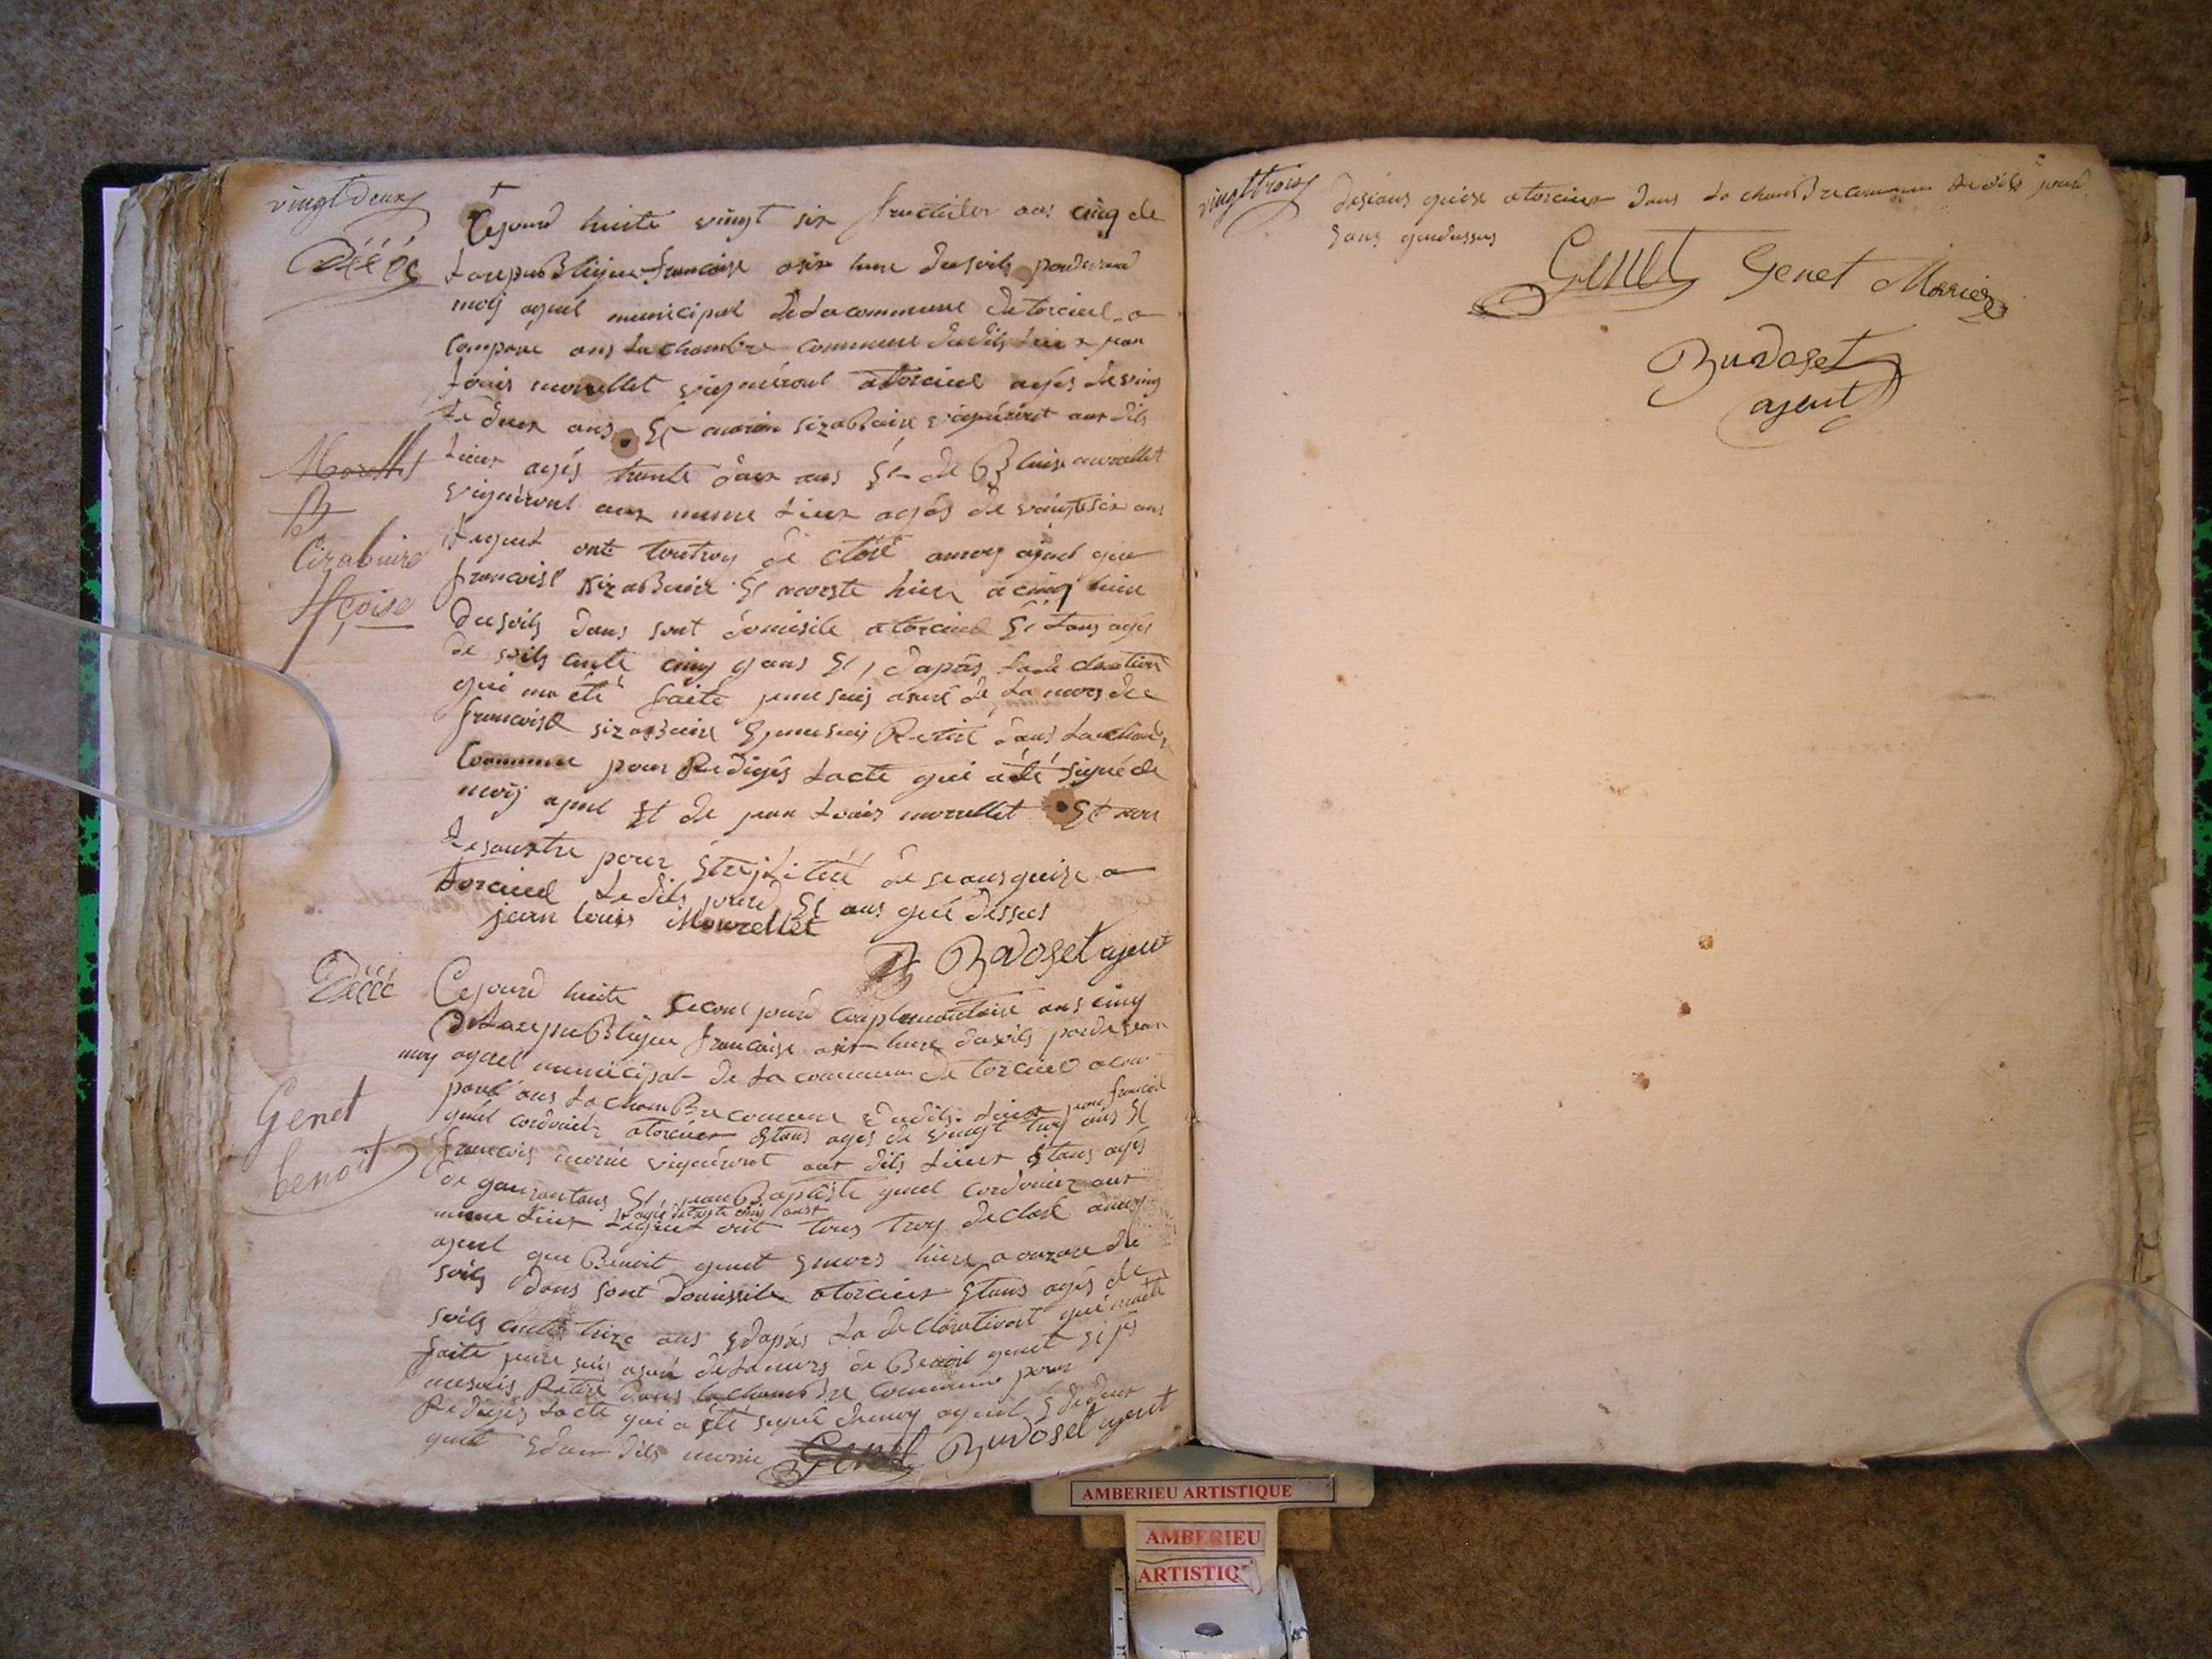 vingt deux
Décés
Cejourd huite vingt six fructidor ans cinq de
La republique francaise a six hure du soits pardevand
moij agent municipal de La commune de torcieul a
Compare ans La chambre commune dudits Lieux jean
Louis morellet vigneront a torcieul agés de ving
te deux ans Et marin sizabuire vigneront aux dits
Lieux agés trante deux ans Et de Blaise morellet
vigneront aux meme Lieux agés de vingt six ans
Lequel ont toutroy de claré a moy agent que
francoise sizabuire Et morste hier a cinq hure
du soits dans sont domisile a torcieul Et tans agés
de soits ante cinq ans Et, dapres La de claration
qui ma été faite je me suis asuré de La mors de
francoise sizabuire Et je me suis Retiré dans La chambre
Commune pour Redigés Lacte qui a été signé de
moij agent Et de jean Louis morellet Et non
Les autre pour Etre
torcieul Le dits jourd Et ans que dessus
jean louis Mourellet
Budoset agent
Morellet
Cizabuire
fçoise
Décéc
Cejourd huite second jourd complemantaire ans cinq
de La republique francaise a six hure du soits pardevan
moy agent municipal de La commune de torcieu a com
paré ans La chambre commune du dits Lieux jean francois
genet cordonier a torcieux Etans agés de vingt troy ans Et
francois morier vigneront aux dits Lieux Etans agés
de garantans Et, jean Baptiste genet cordonier aux
meme Lieux agé de trante cinq ans Lequel ont tous troy declaré a moy
agent que Benoit genet Et mors hiere a onzure du
soits dans sont domissile a torcieux Etans agés de
soits ante treze ans Et dapres La de claration qui mate
faite je me suis asuré de La mors de Benoit genet Et je
me suis Retiré dans la chambre Commune pour
Redigés Lacte qui a été signé de moy agent Et de deux
genet Et dun dits morier Genet Budoset agent
Genet
benoit
vingt trois
desians quise a torcieux Dans La chambre commune Le dits jourd
Et ans que dessus
Genet Genet Morier
Budoset
agent
AMBERIEU ARTISTIQUE
AMBERIEU
ARTISTIQ